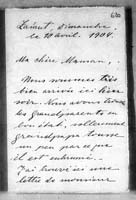 dimanche
le 10 avril. 1904.
Ma chère Maman,
Nous sommes très
bien arrivé ici hier
soir. Nous avons trouvé
les Grandparents en
bon état, seulement
grandpapa tousse
un peu parce que
il est enrhumé.
J'ai trouvé ici une
lettre de monsieur